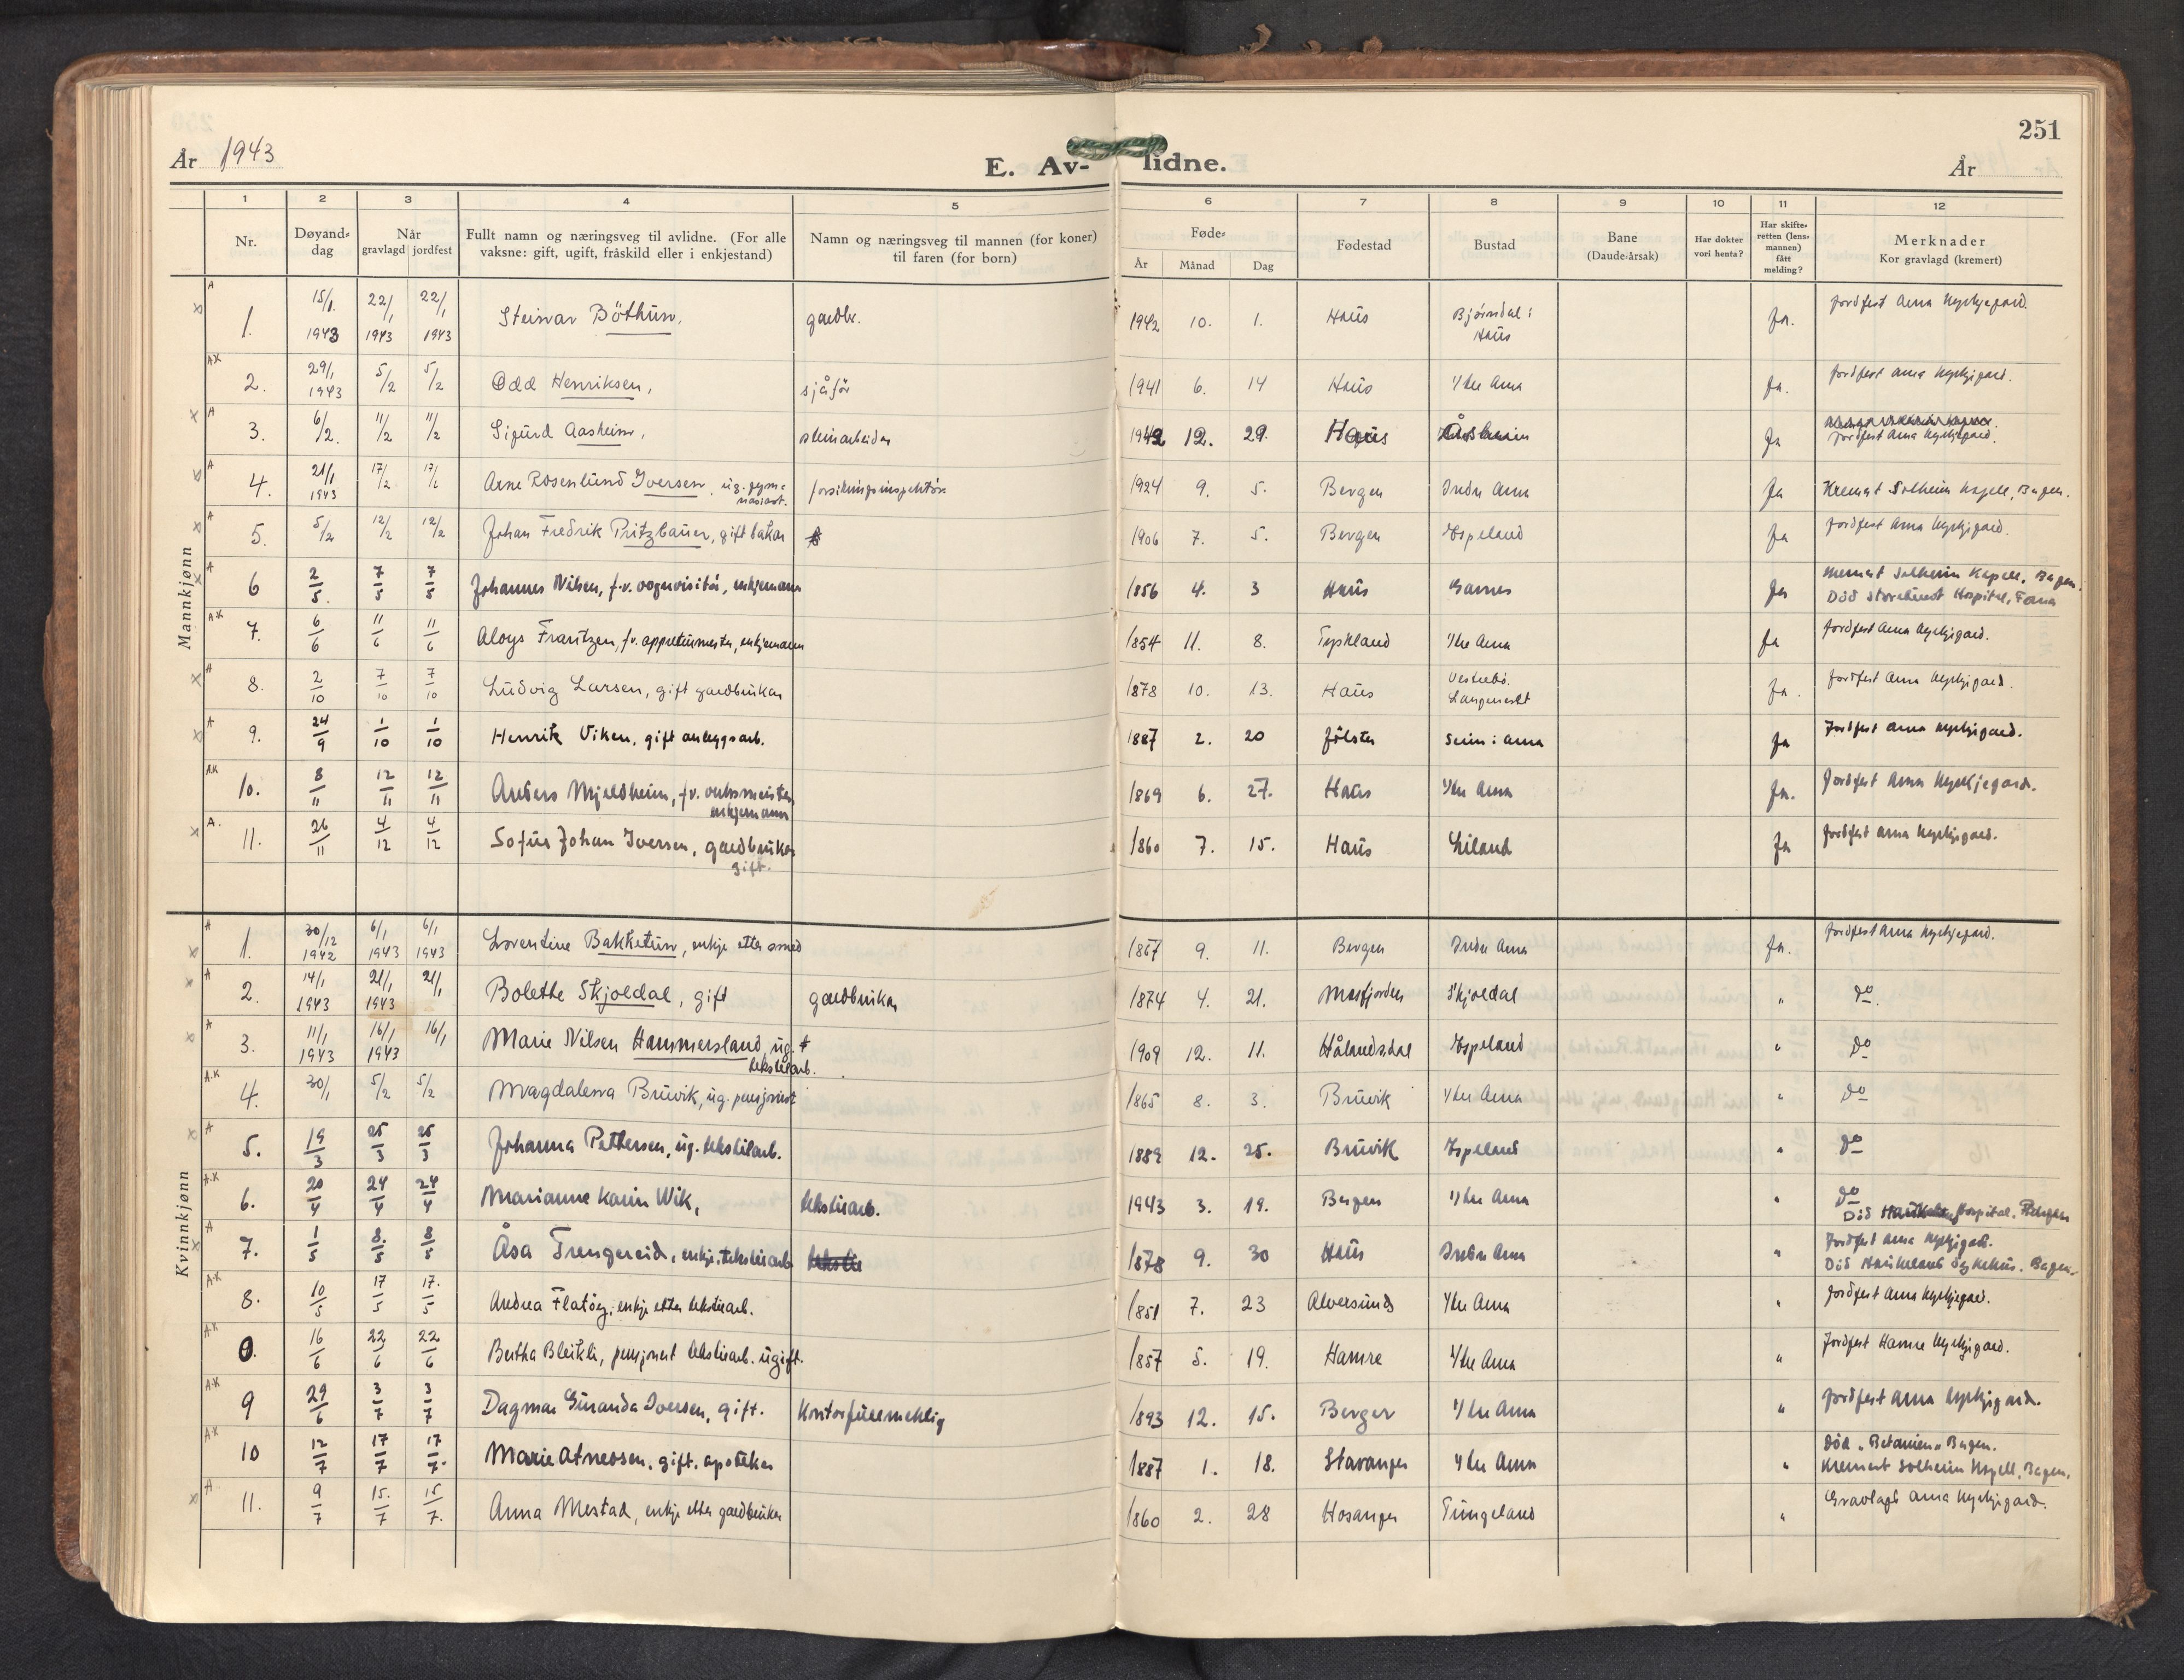 År 1943
E. Av-lidne.
251
År
1 2 3 4 5 6 7 8 9 10 11 12
Nr.
Døyand-dag
Når
gravlagd jordfest
Fullt namn og næringsveg til avlidne. (For alle
vaksne: gift, ugift, fråskild eller i enkjestand)
Namn og næringsveg til mannen (for koner)
til faren (for born)
Føde-
År Månad Dag
Fødestad
Bustad
Bane
(Daude-årsak)
Har dokter
vori henta?
Har skifte-
retten (lens-
mannen)
fått
melding?
Merknader
Kor gravlagd (kremert)
Mannkjønn
A 1. 15/1 1943 22/1 1943 22/1 1943 Steinar Böthun, gardbr. 1942 10. 1. Haus Bjørndal i Haus Ja. Jordfest Arna Kyrkjegard.
AX 2. 29/1 1943 5/2 5/2 Odd Henriksen, sjåför 1941 6. 14 Haus Ytre Arna Ja. Jordfest Arna Kyrkjegard.
A 3. 6/2. 11/2 11/2 Sigurd Aasheim, steinarbeidar 1942 12. 29. Haus Åsheim Ja Jordfest Arna Kyrkjegard.
A 4. 21/1 1943 17/2 17/2 Arne Rosenlund Iversen, ug. gym-nasiast. forsikringsinspektör 1924 9. 5. Bergen Indre Arna Ja Kremert Solheim Kapell, Bergen.
A 5. 5/2 12/2 12/2 Johan Fredrik Pritzbauer, gift bakar 1906 7. 5. Bergen Espeland Ja Jordfest Arna Kyrkjegard.
A 6 2/5. 7/5 7/5 Johannes Nilsen, f.v. vognvisitör, enkjemann 1856 4. 3 Haus Garnes Ja Kremert Solheim Kapell, Bergen.
Död Storetveit Hospital, Fana
AX 7. 6/6 11/6 11/6 Aloys Frantzen, fv. appreturmester, enkjemann 1854 11. 8. Tyskland Ytre Arna Ja Jordfest Arna Kyrkjegard.
A 8. 2/10 7/10 7/10 Ludvig Larsen, gift gardbrukar 1878 10. 13. Haus Vestrebö. Langenest Ja. Jordfest Arna Kyrkjegard.
A 9. 24/9 1/10 1/10 Henrik Viken, gift anleggsarb. 1887 2. 20 Jölster Seim i Arna Ja Jordfest Arna Kyrkjegard.
AX 10. 8/11 12/11 12/11 Anders Mjeldheim, fv. verksmeister, enkjemann 1869 6. 27. Haus Ytre Arna Ja. Jordfest Arna Kyrkjegard.
A. 11. 26/11 4/12 4/12 Sofus Johan Iversen, gardbrukar gift. 1860 7. 15. Haus Liland Ja Jordfest Arna Kyrkjegard.
Kvinnkjønn
A 1. 30/12 1942 6/1 1943 6/1 1943 Lorentine Bakketun, enkje etter smed 1867 9. 11. Bergen Indre Arna Ja. Jordfest Arna Kyrkjegard.
A 2. 14/1 1943 21/1 1943 21/1 Bolette Skjoldal, gift gardbrukar 1874 4. 21. Masfjorden Skjoldal " do.
A 3. 11/1 1943 16/1 1943 16/1 Marie Nilsen Hammersland, ug. tekstilarb. 1909 12. 11. Hålandsdal Espeland " do
A.X 4. 30/1 5/2 5/2 Magdalena Bruvik, ug. pensjonist 1865 8. 3. Bruvik Ytre Arna " do
A 5. 19/3 25/3 25/3 Johanna Pettersen, ug. tekstilarb. 1889 12. 25. Bruvik Espeland " do
A.X 6. 20/4 24/4 24/4 Marianne Karin Wik, tekstilarb. 1943 3. 19. Bergen Ytre Arna " do
Död Haukeland Hospital, Bergen
A 7. 1/5 8./5 8/5 Åsa Trengereid, enkje, tekstilarb. 1878 9. 30 Haus Indre Arna " Jordfest Arna Kyrkjegard.
Död Haukeland Sjukehus. Bergen.
A.X 8. 10/5 17/5 17./5 Andrea Flatöy, enkje etter tekstilarb. 1851 7. 23 Alversund Ytre Arna " Jordfest Arna Kyrkjegard.
A.X 16/6 22/6 22/6 Bertha Bleikli, pensjonert tekstilarb. ugift. 1857 5. 19. Hamre Ytre Arna " Jordfest Hamre Kyrkjegard.
A.X 9 29/6 3/7 3/7 Dagmar Guranda Iversen, gift. Kontorfullmektig 1893 12. 15. Bergen Ytre Arna " Jordfest Arna Kyrkjegard.
A.X 10 12/7 17/7 17/7. Marie Arnessen, gift. apoteker 1887 1. 18. Stavanger Ytre Arna " Död "Betanien" Bergen.
Kremert Solheim Kapell, Bergen.
A 11. 9/7 15./7 15/7. Anna Mestad, enkje etter gardbruker 1860 2. 28 Hosanger Tungeland " Gravlagt Arna Kyrkjegard.